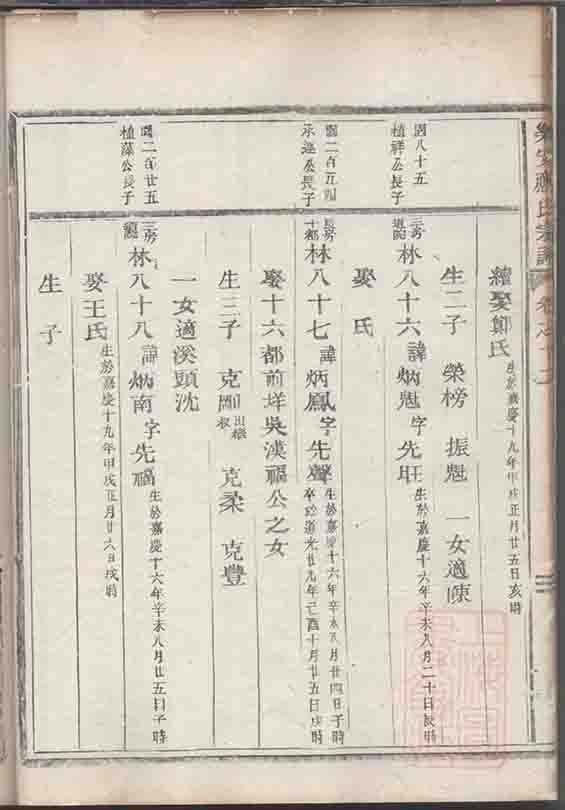 樂安 氏宗譜 卷之十二
續娶鄭氏 生於嘉慶十九年甲戌正月廿五日亥時
生二子 榮榜 振魁 一女適陳
國八十五
植祥公長子
三房 林八十六 諱炳魁 字先旺 生於嘉慶十六年辛未八月二十日辰時
娶 氏
國二百五四
承遜公長子
長房十都 林八十七 諱炳鳳 字先聲 生於嘉慶十六年辛未八月廿四日子時 卒於道光廿九年己酉十月廿五日戌時
娶十六都前垟吳漢福公之女
生三子 克剛 出繼 叔 克柔 克豐
一女適溪頭沈
國二百廿五
植藻公長子
三房 林八十八 諱炳南 字先福 生於嘉慶十六年辛未八月廿五日子時
娶王氏 生於嘉慶十九年甲戌正月廿六日戌時
生 子